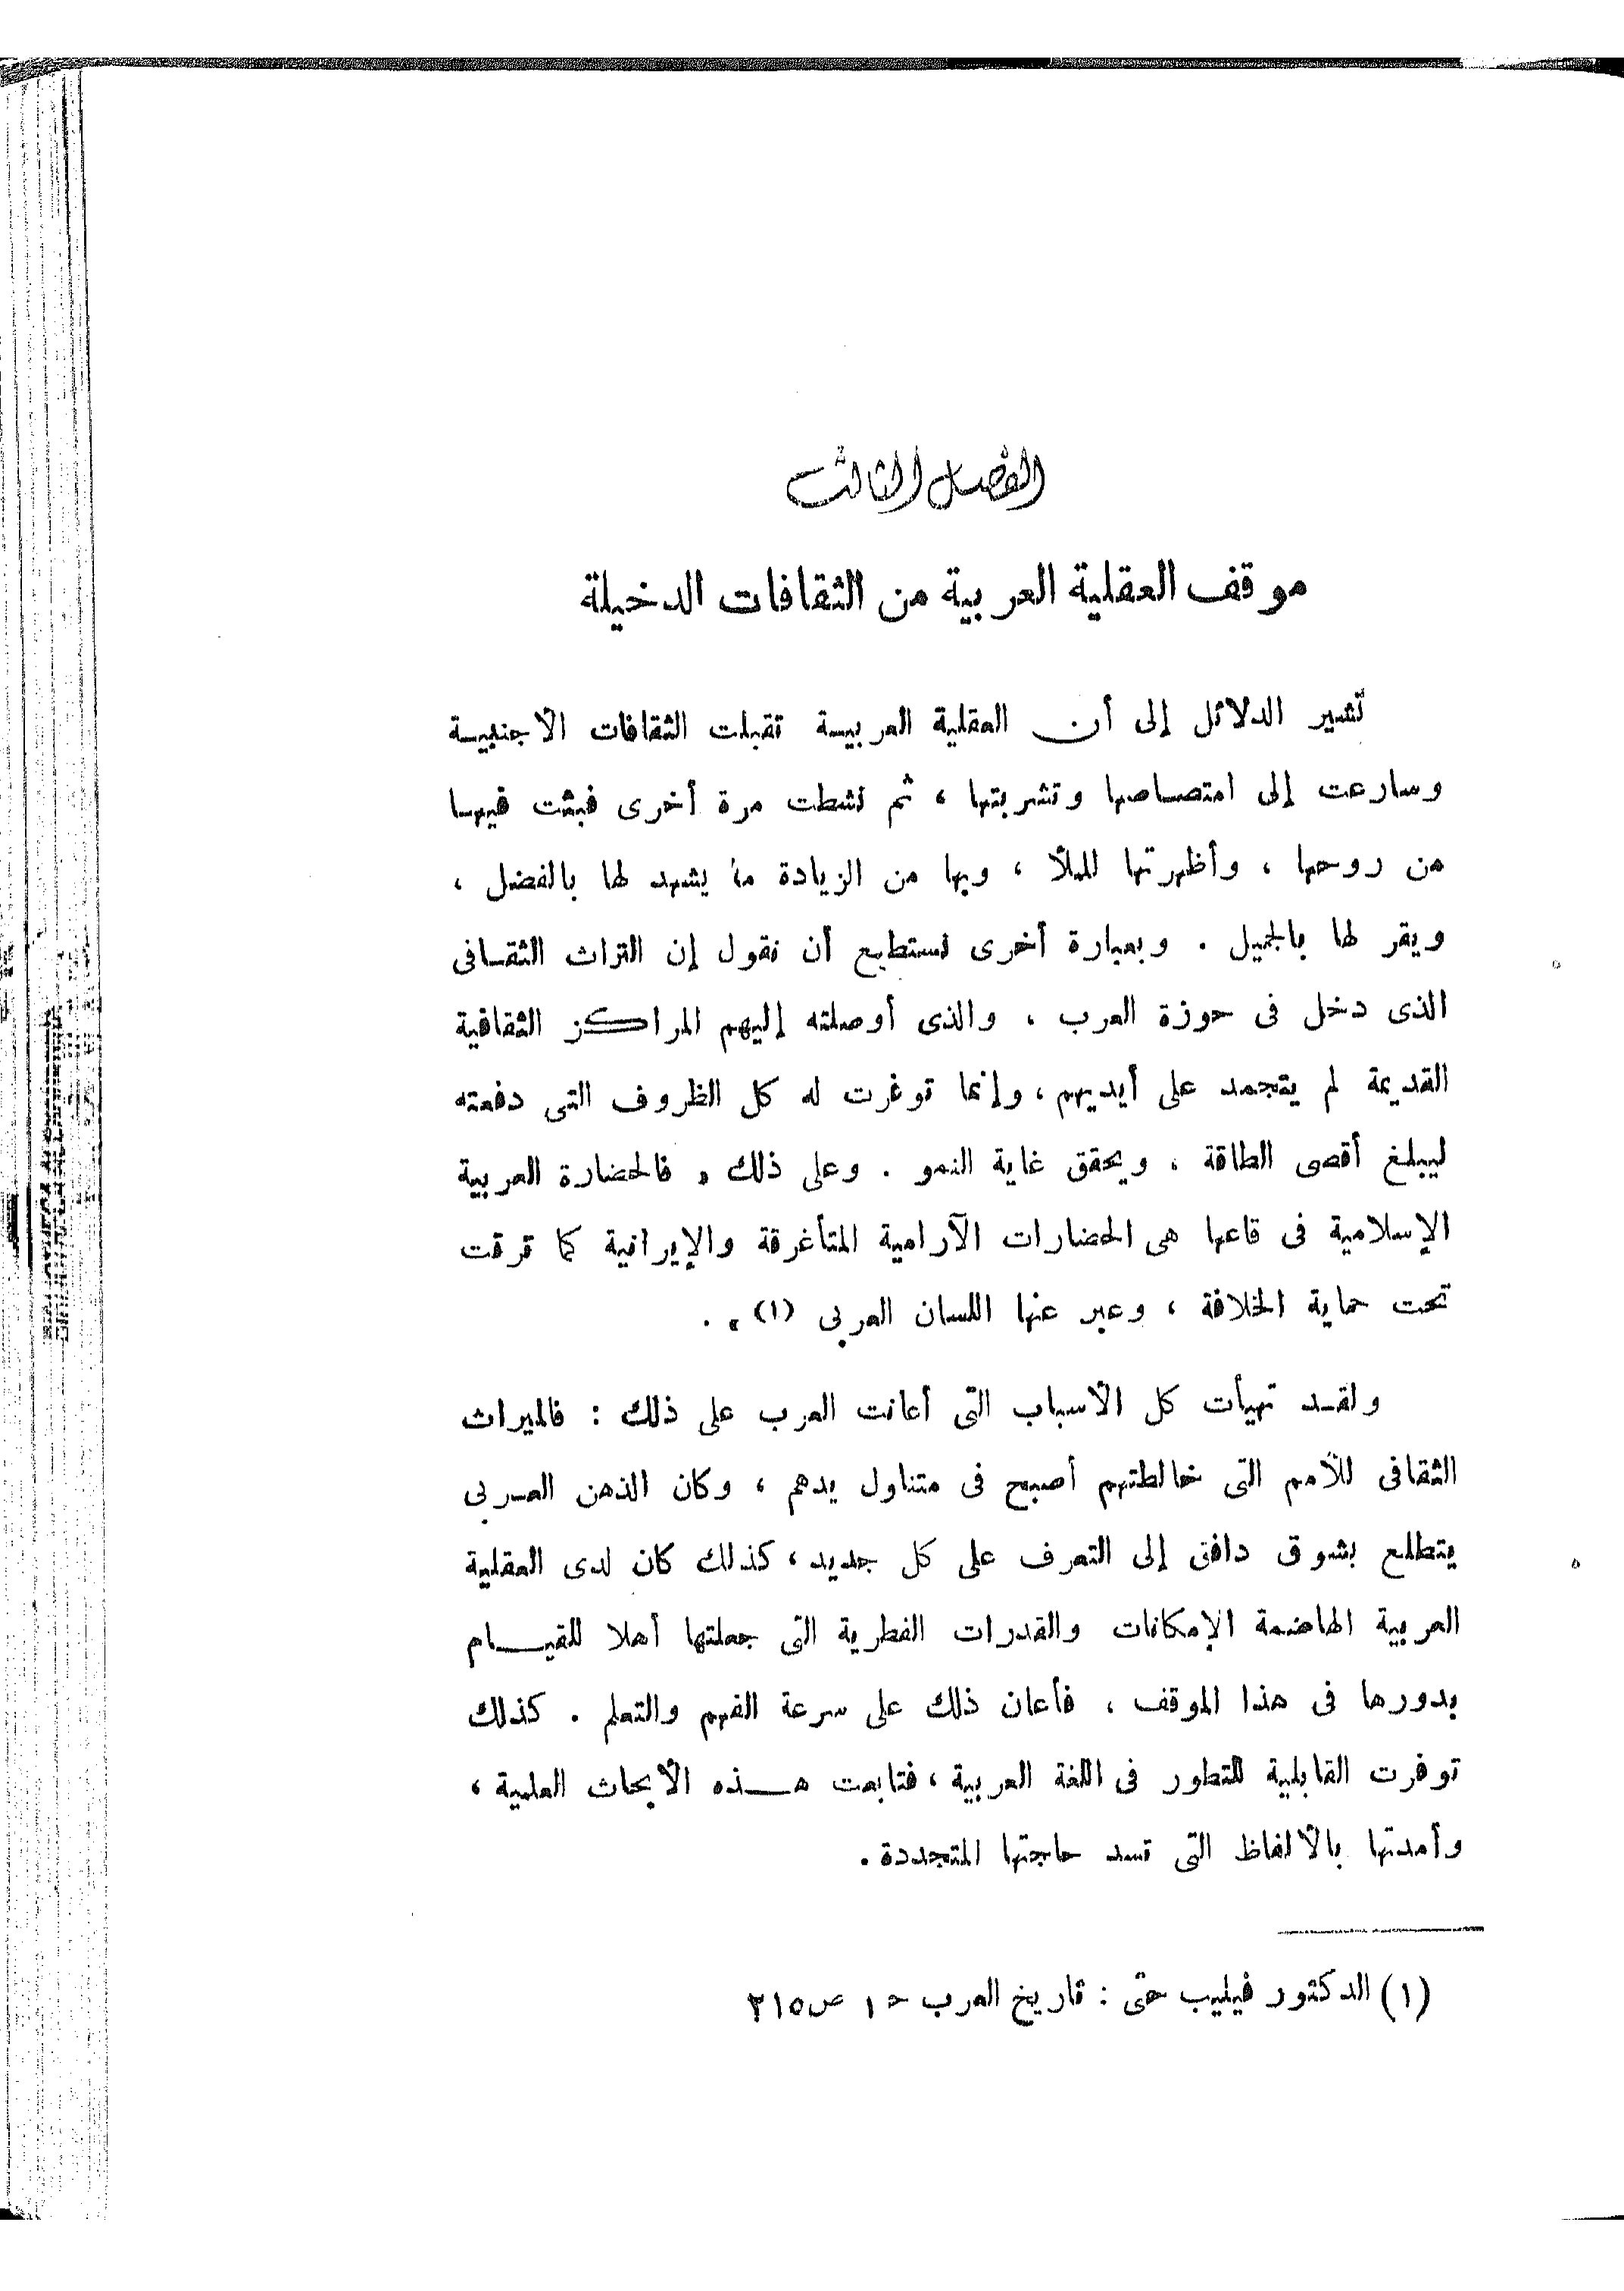 الفصل الثالث
موقف العقلية العربية من الثقافات الدخيلة
تشير الدلائل إلى أن العقلية العربية تقبلت الثقافات الأجنبية
وسارعت إلى امتصاصها وتشربتها ، ثم نشطت مرة أخرى فبثت فيها
من روحها ، وأظهرتها للملأ ، وبها من الزيادة ما يشهد لها بالفضل ،
ويقر لها بالجميل . وبعبارة أخرى نستطيع أن نقول إن التراث الثقافى
الذى دخل فى حوزة العرب ، والذى أوصلته إليهم المراكز الثقافية
القديمة لم يتجمد على أيديهم ، وإنما توفرت له كل الظروف التى دفعته
ليبلغ أقصى الطاقة ، ويحقق غاية النمو . وعلى ذلك « فالحضارة العربية
الإسلامية فى قاعها هى الحضارات الآرامية المتأغرقة والإيرانية كما ترقت
تحت حماية الخلافة ، وعبر عنها اللسان العربى (١) » .
ولقد تهيأت كل الأسباب التى أعانت العرب على ذلك : فالميراث
الثقافى للأمم التى خالطتهم أصبح فى متناول يدهم ، وكان الذهن العربى
يتطلع بشوق دافق إلى التعرف على كل جديد ، كذلك كان لدى العقلية
العربية الهاضمة الإمكانات والقدرات الفطرية التى جعلتها أهلا للقيام
بدورها فى هذا الموقف ، فأعان ذلك على سرعة الفهم والتعلم . كذلك
توفرت القابلية للتطور فى اللغة العربية ، فتابعت هذه الأبحاث العلمية ،
وأمدتها بالألفاظ التى تسد حاجتها المتجددة .
(١) الدكتور فيليب حتى : تاريخ العرب ح ١ ص ٢١٥